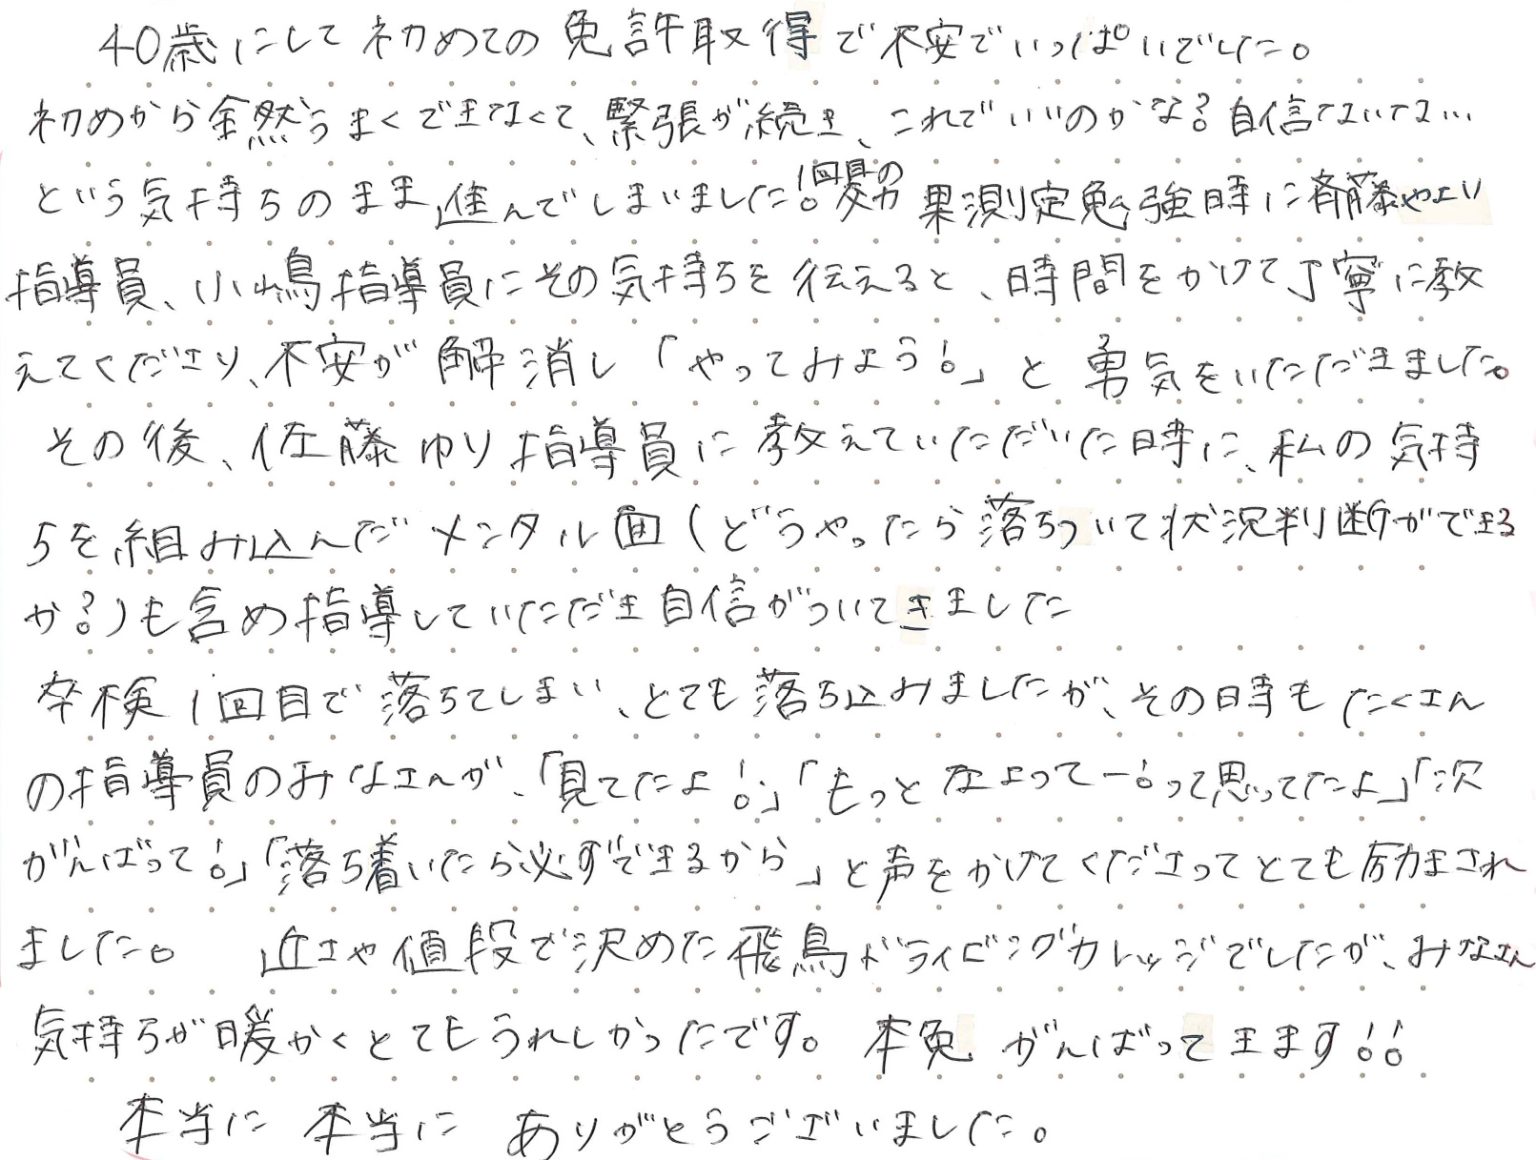 40歳にして初めての免許取得で不安でいっぱいでした。
初めから全然うまくできなくて、緊張が続き、これでいいのかな？自信ないな…
という気持ちのまま進んでしまいました！1回目の効果測定勉強時に斉藤やよい
指導員、小嶋指導員にその気持ちを伝えると、時間をかけて丁寧に教
えてくださり、不安が解消し「やってみよう！」と勇気をいただきました。
その後、佐藤ゆり指導員に教えていただいた時に、私の気持
ちを組み込んだメンタル面（どうやったら落ちついて状況判断ができる
か？）も含め指導していただき自信がついてきました
卒検1回目で落ちてしまい、とても落ち込みましたが、その時もたくさん
の指導員のみなさんが、「見てたよ！」「もっとなよって―！って思ってたよ」「次
がんばって！」「落ち着いたら必ずできるから」と声をかけてくださってとても励まされ
ました。　近さや値段で決めた飛鳥ドライビングカレッジでしたが、みなさん
気持ちが暖かくとてもうれしかったです。本免がんばってきます！！
本当に 本当に ありがとうございました。